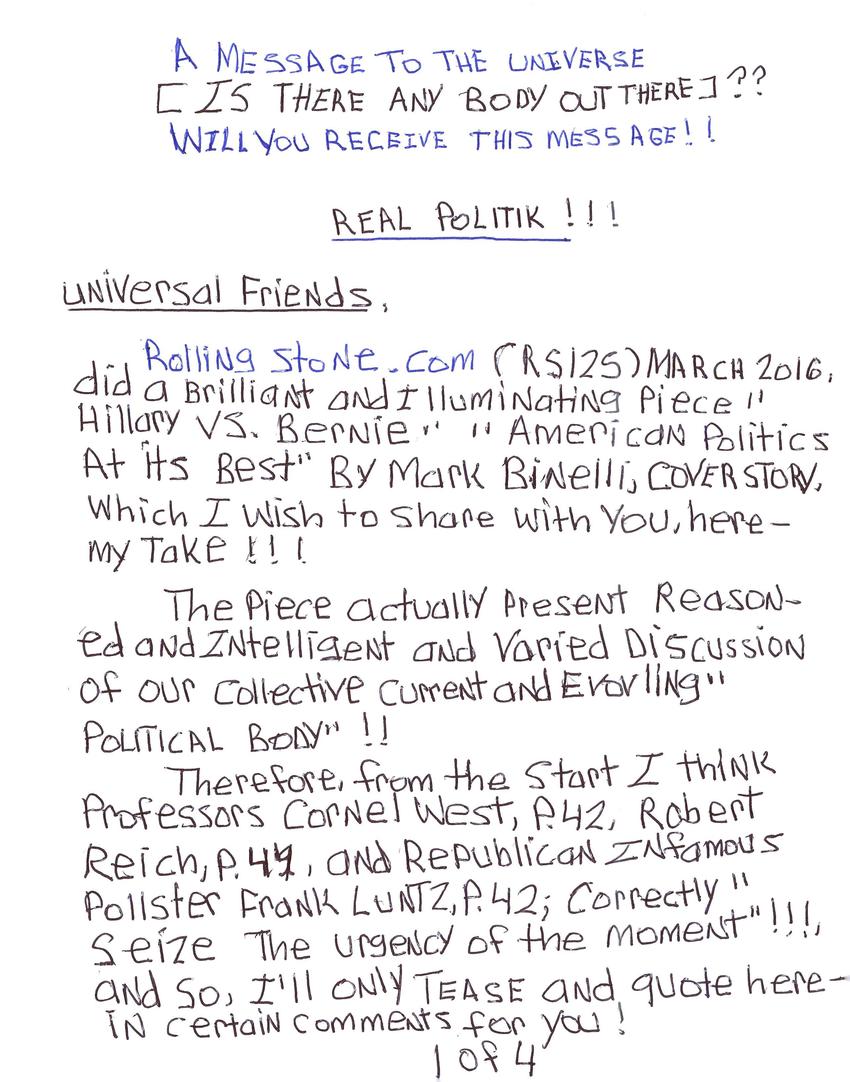 A MESSAGE TO THE UNIVERSE
[IS THERE ANY BODY OUT THERE]??
WILL YOU RECEIVE THIS MESSAGE!!
REAL POLITIK!!!
UNIVersal FrieNds,
Rolling StoNe.Com (RS125) MARCH 2016,
did a BrilliaNt aNd IllumiNatiNg Piece "
Hillary VS. Bernie" " AmericaN Politics
At its Best" By Mark BiNelli, COVER STORY,
Which I Wish to Share with YOU, here-
my Take !!!
The Piece actually PreseNt ReasoN-
ed aNd INtelligeNt aNd Varied DiscussioN
of our Collective Current aNd EvovliNg"
POLITICAL BODY" !!
Therefore, from the Start I thiNK
Professors CorNel West, P.42, Robert
Reich, P.44, aNd RepublicaN INfamous
Pollster FraNK LUNTZ, P.42; Correctly "
Seize The urgeNcy of the momeNt" !!!,
aNd So, I'll oNly TEASE aNd quote here-
iN certaiN commeNts for you!
1 of 4